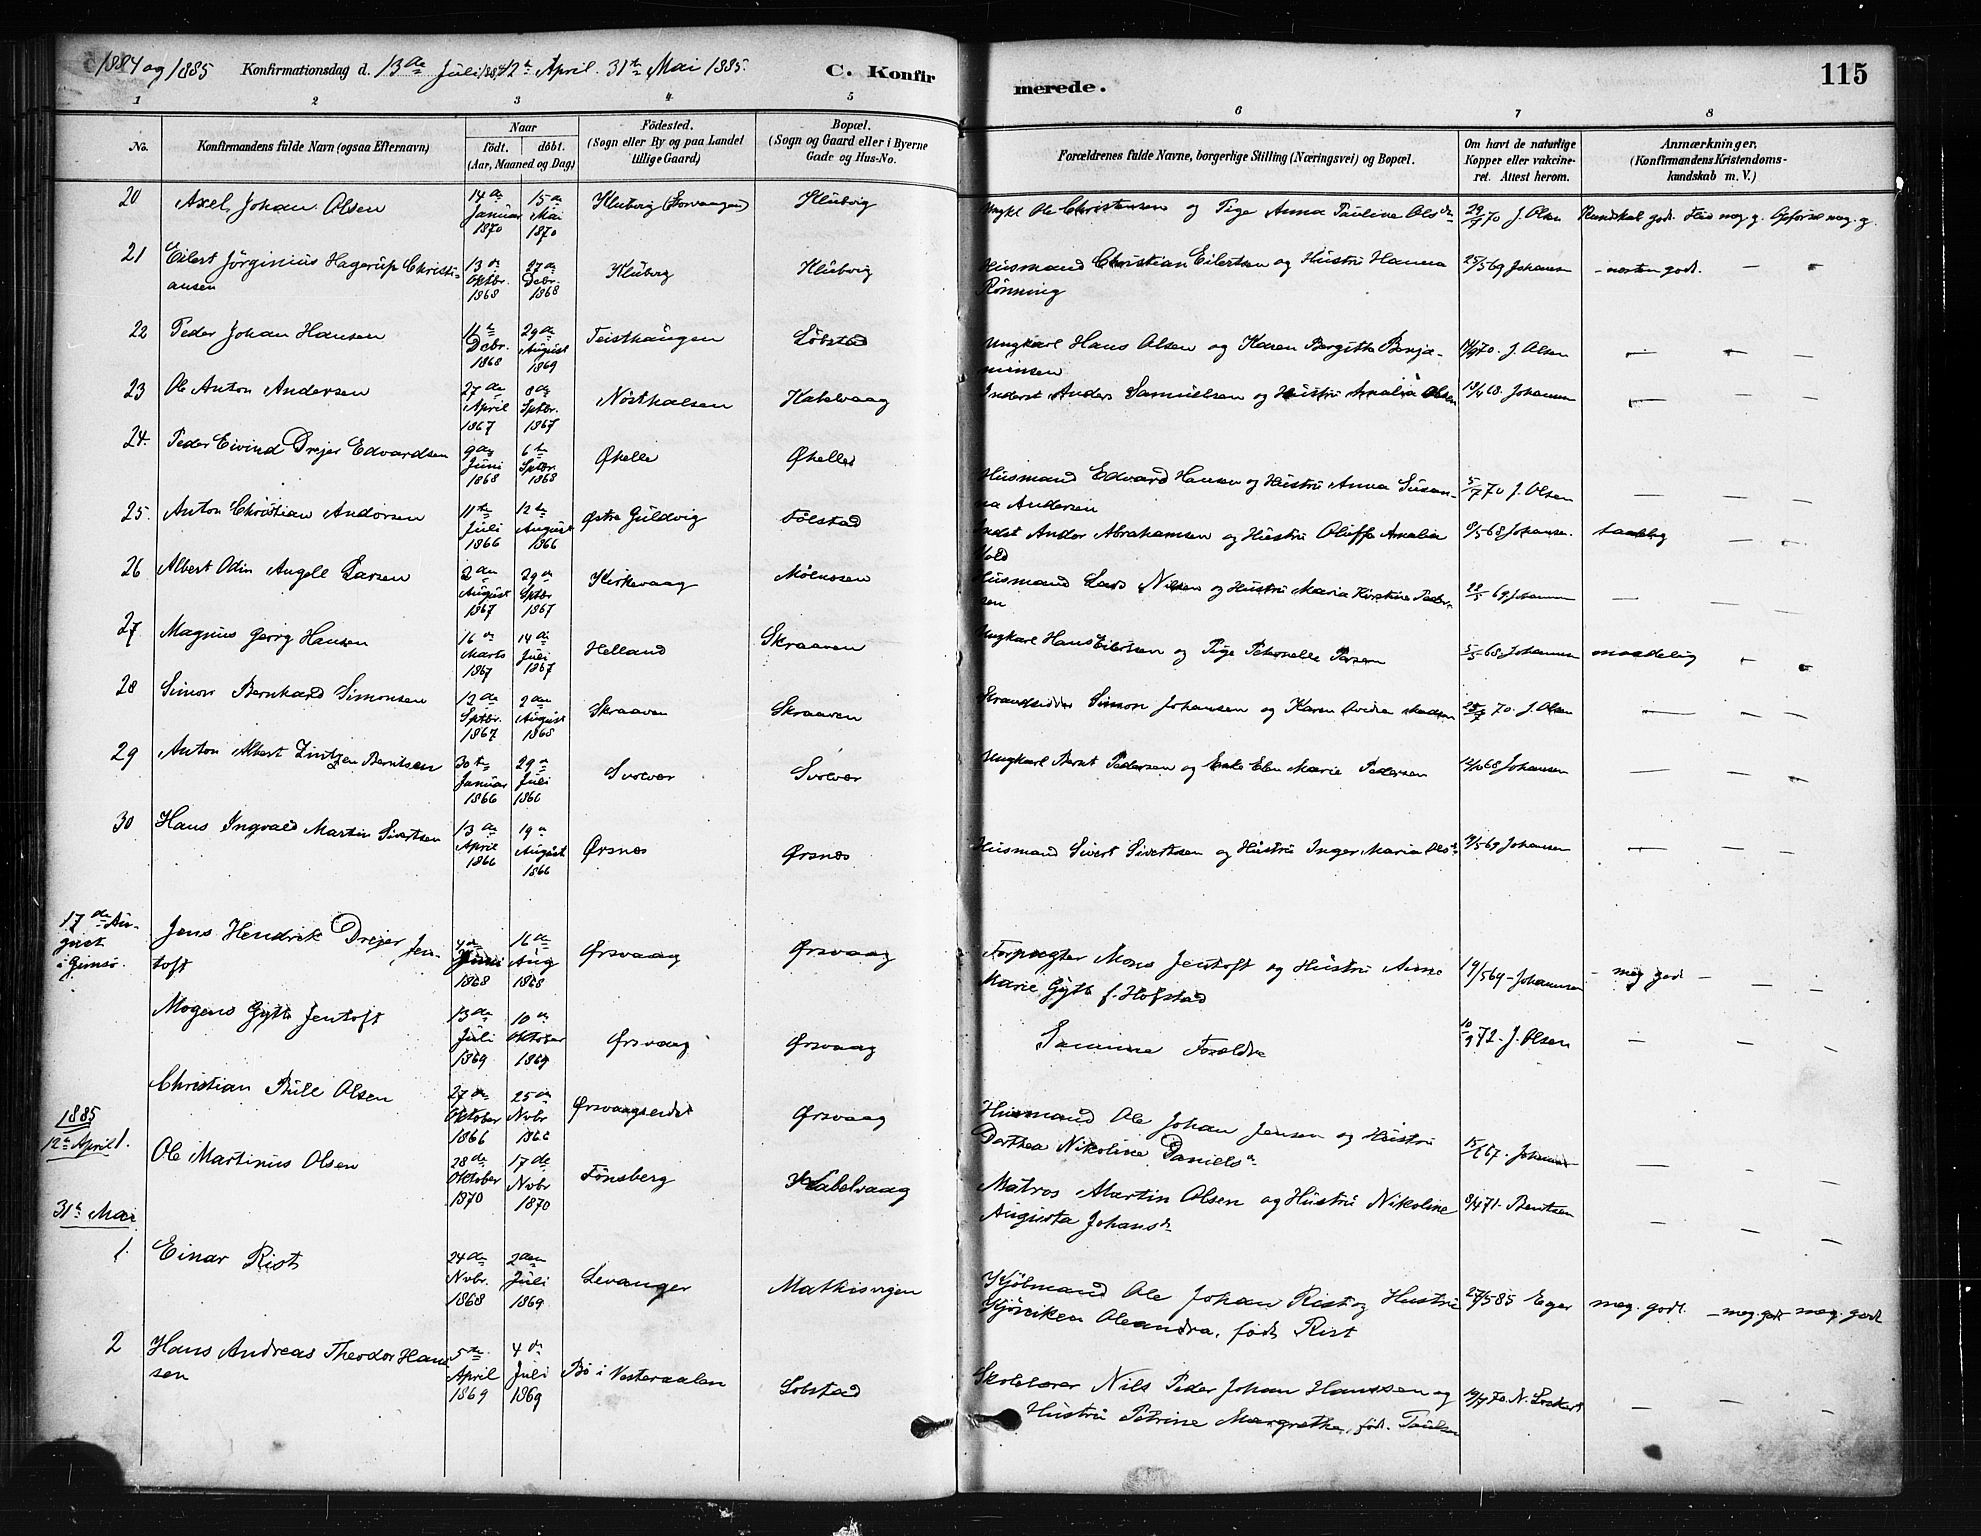 1884 og 1885 Konfirmationsdag d. 13de Juli 1884 12te April. 31te Mai 1885. C. Konfirmerede. 115
1 2 3 4 5 6 7 8
No. Konfirmandens fulde Navn (ogsaa Efternavn) Naar født. døbt. (Aar, Maaned og Dag) Fødested. (Sogn eller By og paa Landet tillige Gaard) Bopæl. (Sogn og Gaard eller i Byerne Gade og Hus-No. Forældrenes fulde Navne, borgerlige Stilling (Næringsvei) og Bopæl. Om havt de naturlige Kopper eller vaccineret. Attest herom. Anmærkninger, (Konfirmandens Kristendomskundskab m. V.)
20 Axel Johan Olsen 14de Januar 1870 15de Mai 1870 Klubvig Klubvig Ungkl Ole Christensen og Pige Anna Pauline Olsdr 29/7 70 J. Olsen Kundskab god. Flid meg. g. Opførsel meg. g.
21 Eilert Jørginius Hagerup Christiansen 13de Oktbr. 1868 27de Debr. 1868 Klubvig Klubvig Husmand Christian Eilertsen og Hustru Hanna Rønning 25/5 69 Johansen - næsten god. — —
22 Peder Johan Hansen 11te Debr. 1868 29de August 1869 Teisthaugen Løbstad Ungkarl Hans Olsen og Karen Bergitte Benjaminsen 70. J. Olsen — — —
23 Ole Anton Andersen 27de April 1867 8de Sptbr. 1867 Nøsthalsen Kabelvaag Inderst Anders Samuelsen og Hustru Amalia Olsen 68. Johansen — — —
24. Peder Eivind Drejer Edvardsen 9de Juni 1868 6te Sptbr. 1868 Økelle Økelle Husmand Edvard Hansen og Hustru Anna Susanna Andersen 5/7 70 J. Olsen — — —
25. Anton Christian Andorsen 11te Juli 1866 12te August 1866 Østre Guldvig Følstad Andor Abrahamsen og Hustru Oluffe Amalia 9/5 68 Johansen. taalelig — —
26 Albert Odin Angell Larsen 2den August 1867 29de Sptbr 1867 Kirkevaag Mølnosen Husmand Lars Nilsen og Hustru Maria Kirstine Pedersen 69 Johansen — — —
27. Magnus Georg Hansen 16de Marts 1867 14de Juli 1867 Helland Skraaven Ungkarl Hans Eilertsen og Pige Petronelle 68. Johansen maadelig — —
28 Simon Bernhard Simonsen 12de Sptbr. 1867 2den August 1868 Skraaven Skraaven Strandsidder Simon Johansen og Karen 70. J. Olsen — — —
29 Anton Albert Zintzen Berntsen 30te Januar 1866 29de Juli 1866 Svolvær Svolvær Ungkarl Bernt Pedersen og Enke Elen Marie Pedersen 68 Johansen — — —
30 Hans Ingvald Martin Sivertsen 13de April 1866 19de August 1866 Ørsnæs Ørsnæs Husmand Sivert Sivertsen og Hustru Inger Maria Olsdr 69 Johansen — — —
17de August i Gimsø. Jens Hendrik Drejer Jentoft 4de Juni 1868 16de Aug 1868 Ørsvaag Ørsvaag Forpagter Mons Jentoft og Hustru Anne Marie Gytte f. Hofstad 19/5 69 - Johannsen - meg god - — —
Mogens Gytte Jentoft 13de Juli 1869 10de Oktober 1869 Ørsvaag Ørsvaag Samme Forældre 10/9 72. J. Olsen — — —
Christian Bull Olsen 27de Oktober 1866 25de Novbr 1866 Ørsvaagseidet Ørsvaag Husmand Ole Johan Jensen og Hustru Dorthea Nikoline Danielsdr 67. Johansen — — —
1885
12te April 1. Ole Martinus Olsen 28de Oktober 1870 17de Novbr 1870 Tønsberg Kabelvaag Matros Martin Olsen og Hustru Nikoline Augusta Johansdr 9/4 71. Berntsen — — —
31te Mai
1. Einar Rist 24de Nvbr. 1868 2den Juli 1869 Levanger Mathisvigen Kjøbmand Ole Johan Rist og Hustru Oleandra, født Rist 27/5 85 Eger meg. godt. - meg. godt meg. godt
2 Hans Andreas Theodor Hanssen 5te April 1869 4de Juli 1869 Bø i Vesteraalen Lobstad Skolelærer Nils Peder Johan Hanssen og Hustru Petrine Margrethe, født. Paulsen 70. N. — — —